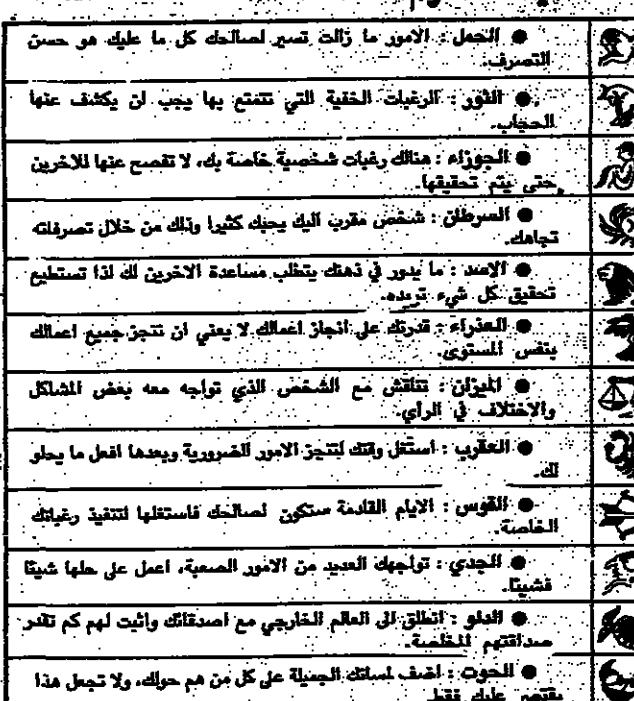 ● الحمل : الامور ما زالت تسير لصالحك كل ما عليك هو حسن
التصرف.
● الثور : الرغبات الخفية التي تتمتع بها يجب ان يكشف عنها
الحجاب.
● الجوزاء : هنالك رغبات شخصية خاصة بك، لا تفصح عنها للاخرين
حتى يتم تحقيقها.
● السرطان : شخص مقرب اليك يحبك كثيرا وذلك من خلال تصرفاته
تجاهك.
● الاسد : ما يدور في ذهنك يتطلب مساعدة الاخرين لك لذا تستطيع
تحقيق كل شيء تريده.
● العذراء : قدرتك على انجاز اعمالك لا يعني ان تنجز جميع اعمالك
بنفس المستوى.
● الميزان : تناقش مع الشخص الذي تواجه معه بعض المشاكل
والاختلاف في الرأي.
● العقرب : استغل وقتك لتنجز الامور الضرورية وبعدها افعل ما يحلو
لك.
● القوس : الايام القادمة ستكون لصالحك فاستغلها لتنفيذ رغباتك
الخاصة.
● الجدي : تواجهك العديد من الامور الصعبة، اعمل على حلها شيئا
فشيئا.
● الدلو : انطلق الى العالم الخارجي مع اصدقائك واثبت لهم كم تقدر
صداقتهم المخلصة.
● الحوت : اضف لمساتك الجميلة على كل من هم حولك، ولا تجعل هذا
يقتصر عليك فقط.